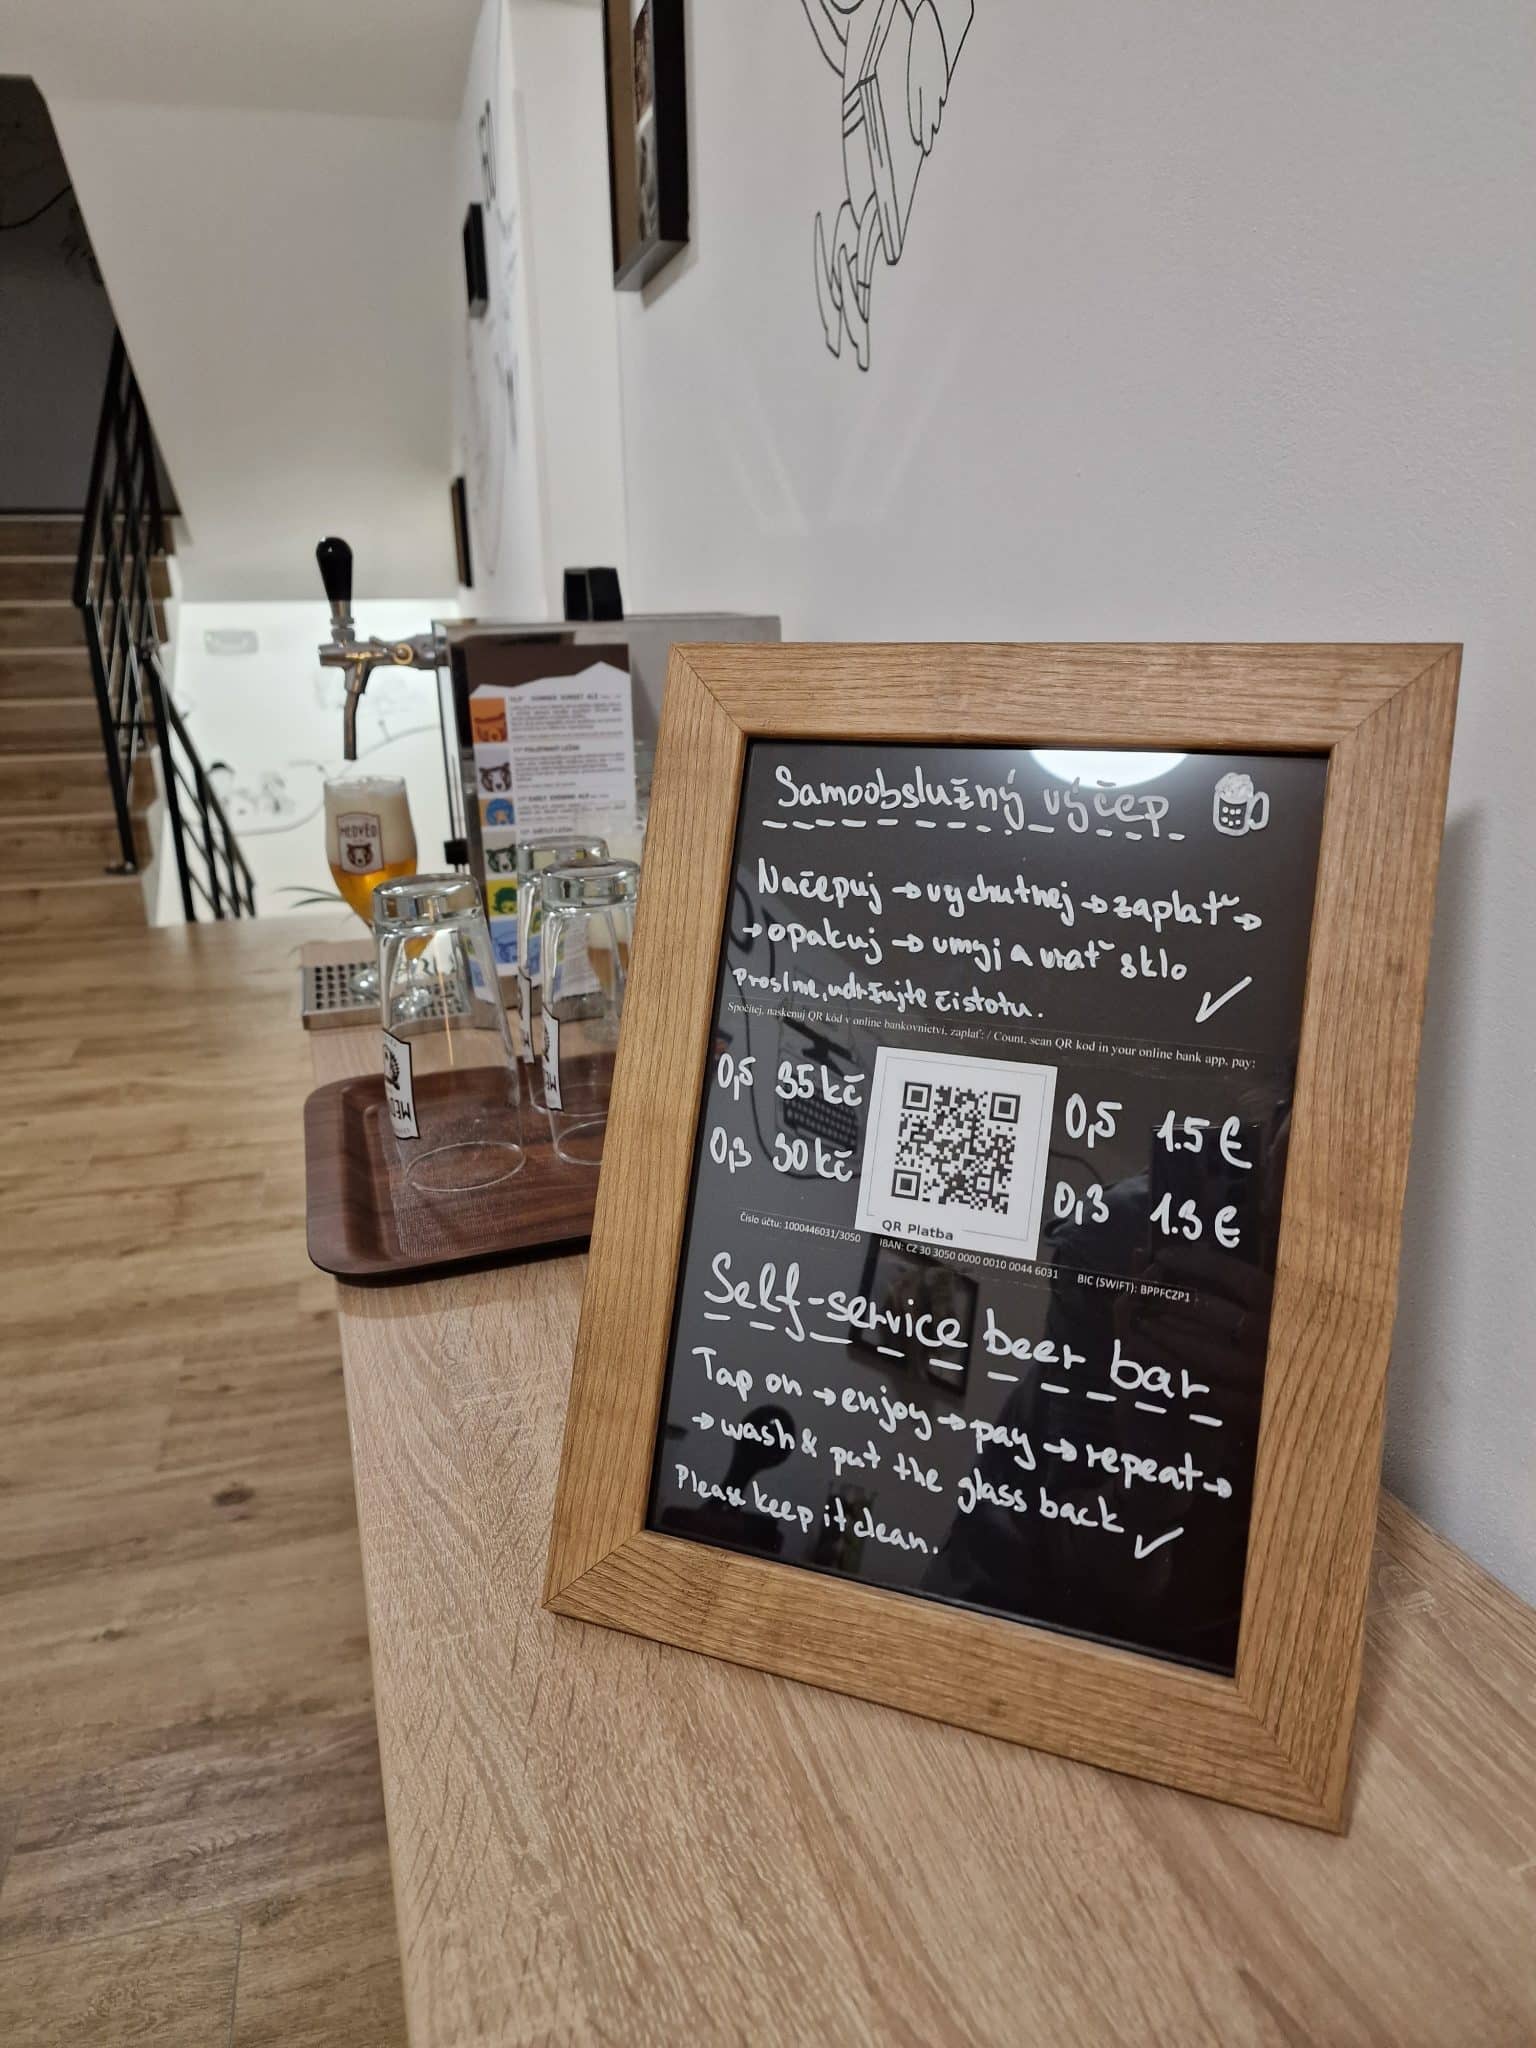 Samoobslužný výčep
Načepuj → vychutnej → zaplať →
→ opakuj → umyj a vrať sklo
Prosíme, udržujte čistotu. ✓
Spočítej, naskenuj QR kód v online bankovnictví, zaplať: / Count, scan QR kod in your online bank app, pay:
0,5 35 kč
0,3 30 kč
QR Platba
0,5 1.5 €
0,3 1.3 €
Číslo účtu: 1000446031/3050 IBAN: CZ 30 3050 0000 0010 0044 6031 BIC (SWIFT): BPPFCZP1
Self-service beer bar
Tap on → enjoy → pay → repeat →
→ wash & put the glass back
Please keep it clean. ✓
MEDVĚD
SUMMER SUNSET ALE
POLOTMAVÝ LEŽÁK